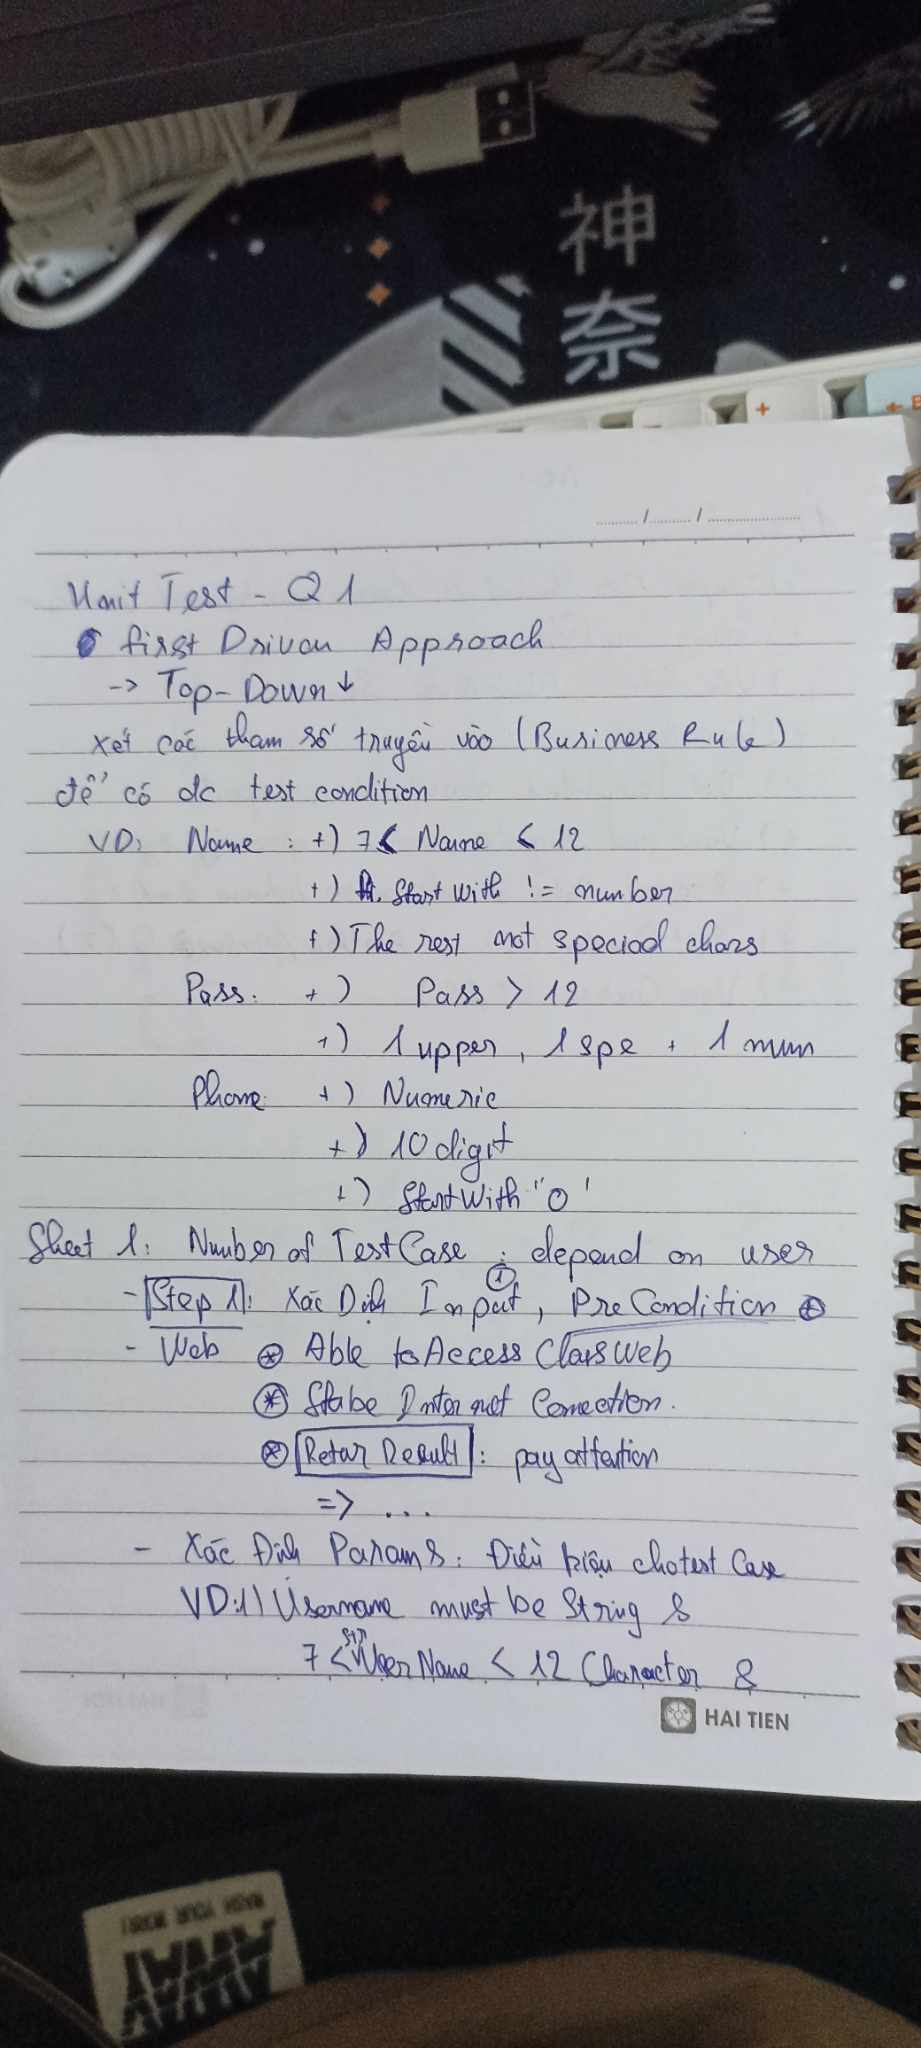 神
奈
Unit Test - Q1
first Driven Approach
-> Top-Down ↓
Xét các tham số truyền vào (Business Rule)
để có dc test condition
VD: Name : +) 7 < Name < 12
+) Start With != number
+) The rest not special chars
Pass: +) Pass > 12
+) 1 upper, 1 spe + 1 num
Phone: +) Numeric
+) 10 digit
+) Start With "0"
Sheet 1: Number of TestCase : depend on user
- Step 1: Xác Định Input, PreCondition
①
- Web Able to Access Class Web
Stabe Internet Conection.
Retur Result : pay attention
=> ...
- Xác Định Params: Điều kiện cho test Case
VD:1) Username must be String &
str
7 < UserName < 12 Character &
HAI TIEN
WASH YOUR
AWAY